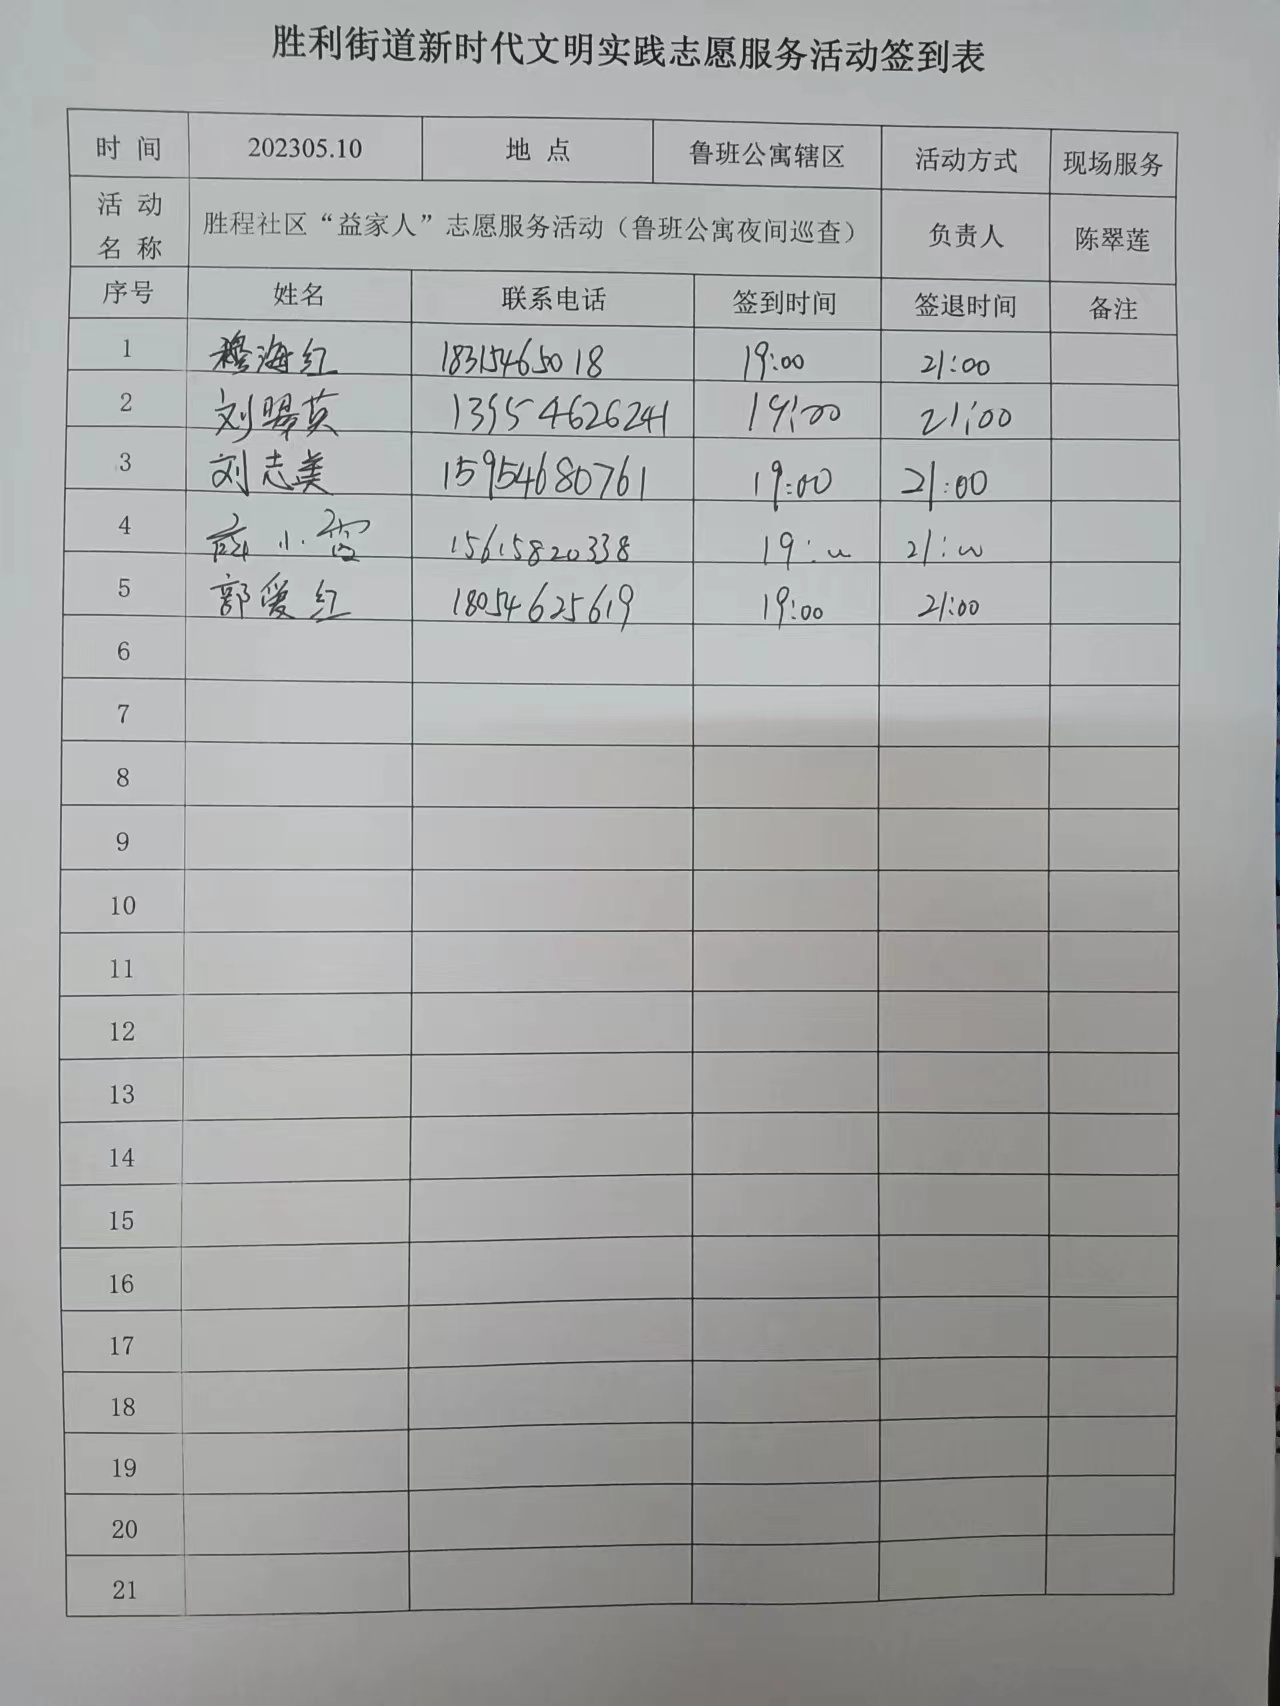 胜利街道新时代文明实践志愿服务活动签到表
时 间 202305.10 地 点 鲁班公寓辖区 活动方式 现场服务
活 动 名 称 胜程社区“益家人”志愿服务活动（鲁班公寓夜间巡查） 负责人 陈翠莲
序号 姓名 联系电话 签到时间 签退时间 备注
1 穆海红 18315465018 19:00 21:00
2 刘 英 13954626241 19:00 21:00
3 刘志美 15954680761 19:00 21:00
4 小霞 15615820338 19:00 21:00
5 郭爱红 18054625619 19:00 21:00
6
7
8
9
10
11
12
13
14
15
16
17
18
19
20
21